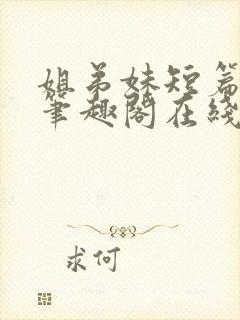 姐弟妹短篇
笔趣阁在线
求何